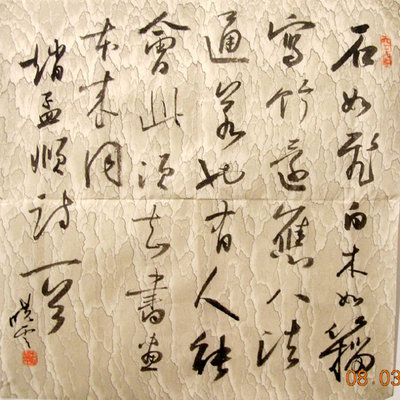 石如飛白木如籀
寫竹還應八法
通若也有人能
會此須知書畫
本來同
趙孟頫詩一首
08.03